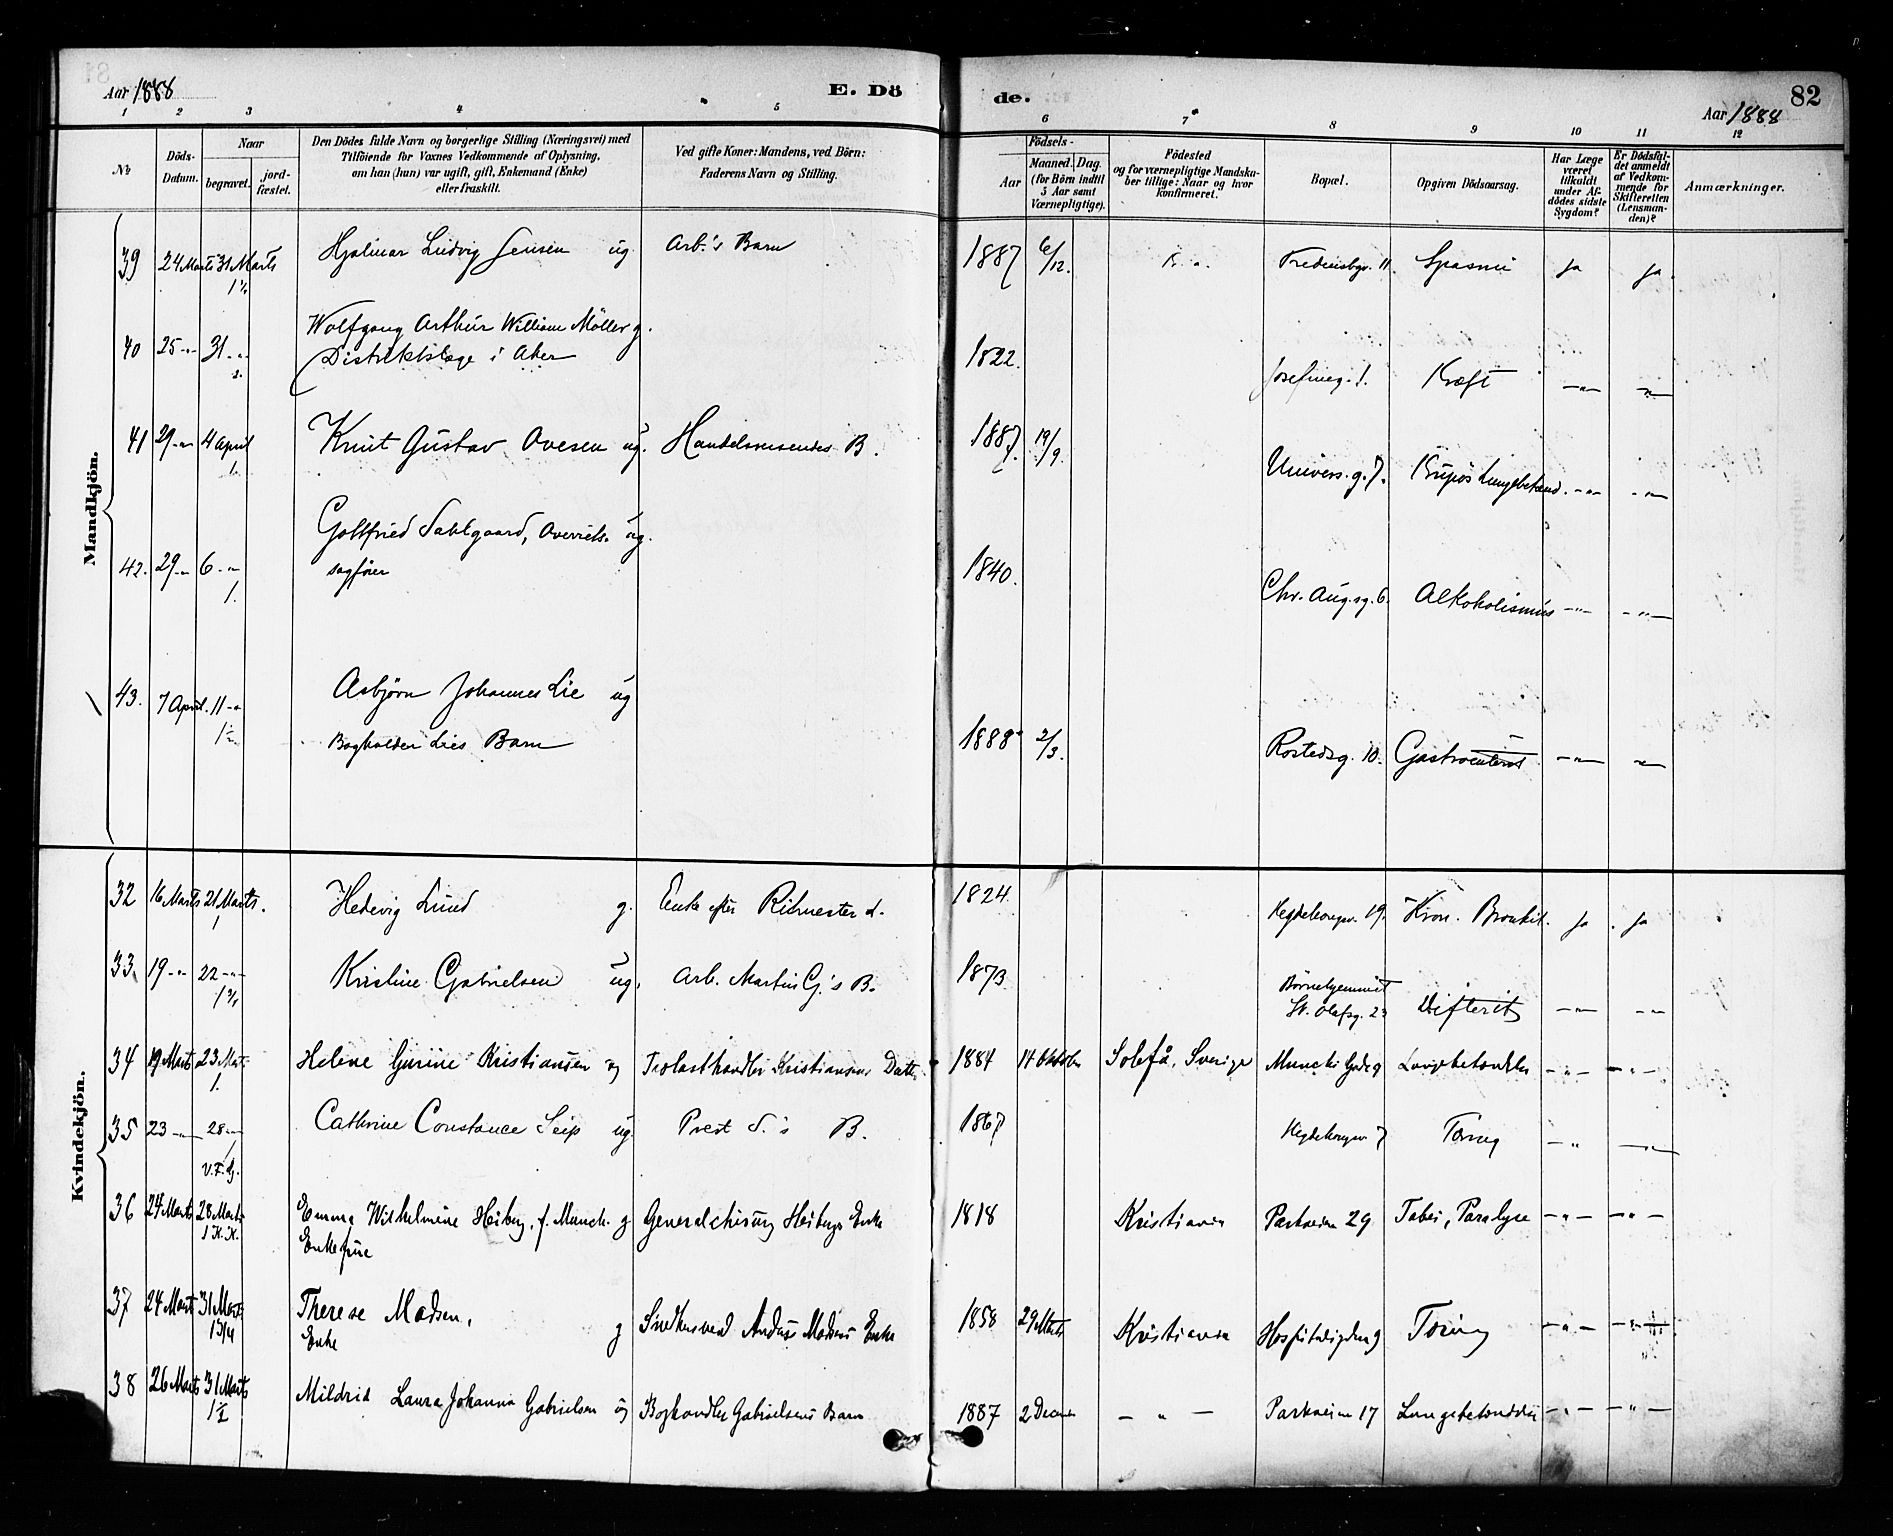 Aar 1888
E. Dö
de.
82
Aar 1888
1 2 3 4 5 6 7 8 9 10 11 12
No
Döds-Datum.
Naar
begravet.
jord-fæstet.
Den Dödes fulde Navn og borgerlige Stilling (Næringsvei) med
Tilföiende for Voxnes Vedkommende af Oplysning,
om han (hun) var ugift, gift, Enkemand (Enke)
eller fraskilt.
Ved gifte Koner: Mandens, ved Börn:
Faderens Navn og Stilling.
Födsels-
Aar
Maaned. Dag.
(for Börn indtil
5 Aar samt
Værnepligtige).
Födested
og for værnepligtige Mandska-
ber tillige: Naar og hvor
konfirmeret.
Bopæl.
Opgiven Dödsaarsag.
Har Læge
været
tilkaldt
under Af-
dödes sidste
Sygdom?
Er Dödsfal-
det anmeldt
af Vedkom-
mende for
Skifteretten
(Lensman-
den)?
Anmærkninger.
Mandkjön.
39 24 Marts 31 Marts Hjalmar Ludvig Jensen ug. Arb.'s Barn 1887 6/12. K. a. Fredensbgv. 11. Spasmi Ja Ja.
40 25 -"- 31 -"- Wolfgang Arthur William Möller g.
Distriktslæge i Aker 1822. Josefineg. 1. Kræft -"- -"-
41 29 -"- 4 April Knut Gustav Ovesen ug. Handelsreisendes B. 1887. 19/9 Univers. g. 7. Krupös Lungebetænd. -"- -"-
42. 29 -"- 6 -"- Gottfried Sahlgaard, Overrets- ug.
sagförer 1840. Chr. Aug.sg. 6. Alkoholismus -"- -"-
43. 7 April. 11 -"- Asbjørn Johannes Lie ug
Bogholder Lies Barn 1888 2/3. Rostedsg. 10. Gastroenterit -"- -"-
Kvindekjön.
32 16 Marts 21 Marts. Hedevig Lund g. Enke efter Ritmester L. 1824. Hegdehaugsv. 19. Kron. Bronkit. Ja Ja
33. 19 -"- 22 -"- Kristine Gabrielsen ug. Arb. Martin G.'s B. 1873 Børnehjemmet
St. Olafsg. 23 Difterit -"- -"-
34 19 Marts 23 Marts Helene Gurine Kristiansen ug Trelasthandler Kristiansens Datter 1884 14 Oktober Solefå, Sverige Munchs Gade 9 Lungebetændelse -"- -"-
35 23 -"- 28 -"- Cathrine Constance Seip ug. Prest S.'s B. 1867 Hegdehaugsv. 7 Tæring -"- -"-
V.F.G.
36 24 Marts 28 Marts Emma Wilhelmine Heiberg, f. Munch. g Generalchirurg Heibergs Enke 1818 Kristiania Parkveien 29 Tabes, Paralyse -"- -"-
1 K.K. Enkefrue
37 24 Marts 31 Marts Therese Madsen, g Snedkersvend Anders Madsens Enke 1858 29 Marts Kristiania Hospitalsgaden 9 Tæring -"- -"-
Enke
38 26 Marts 31 Marts Mildrid Laura Johanna Gabrielsen ug Boghandler Gabrielsens Barn 1887 2 Decmbr -"- Parkveien 17 Lungebetændelse -"- -"-